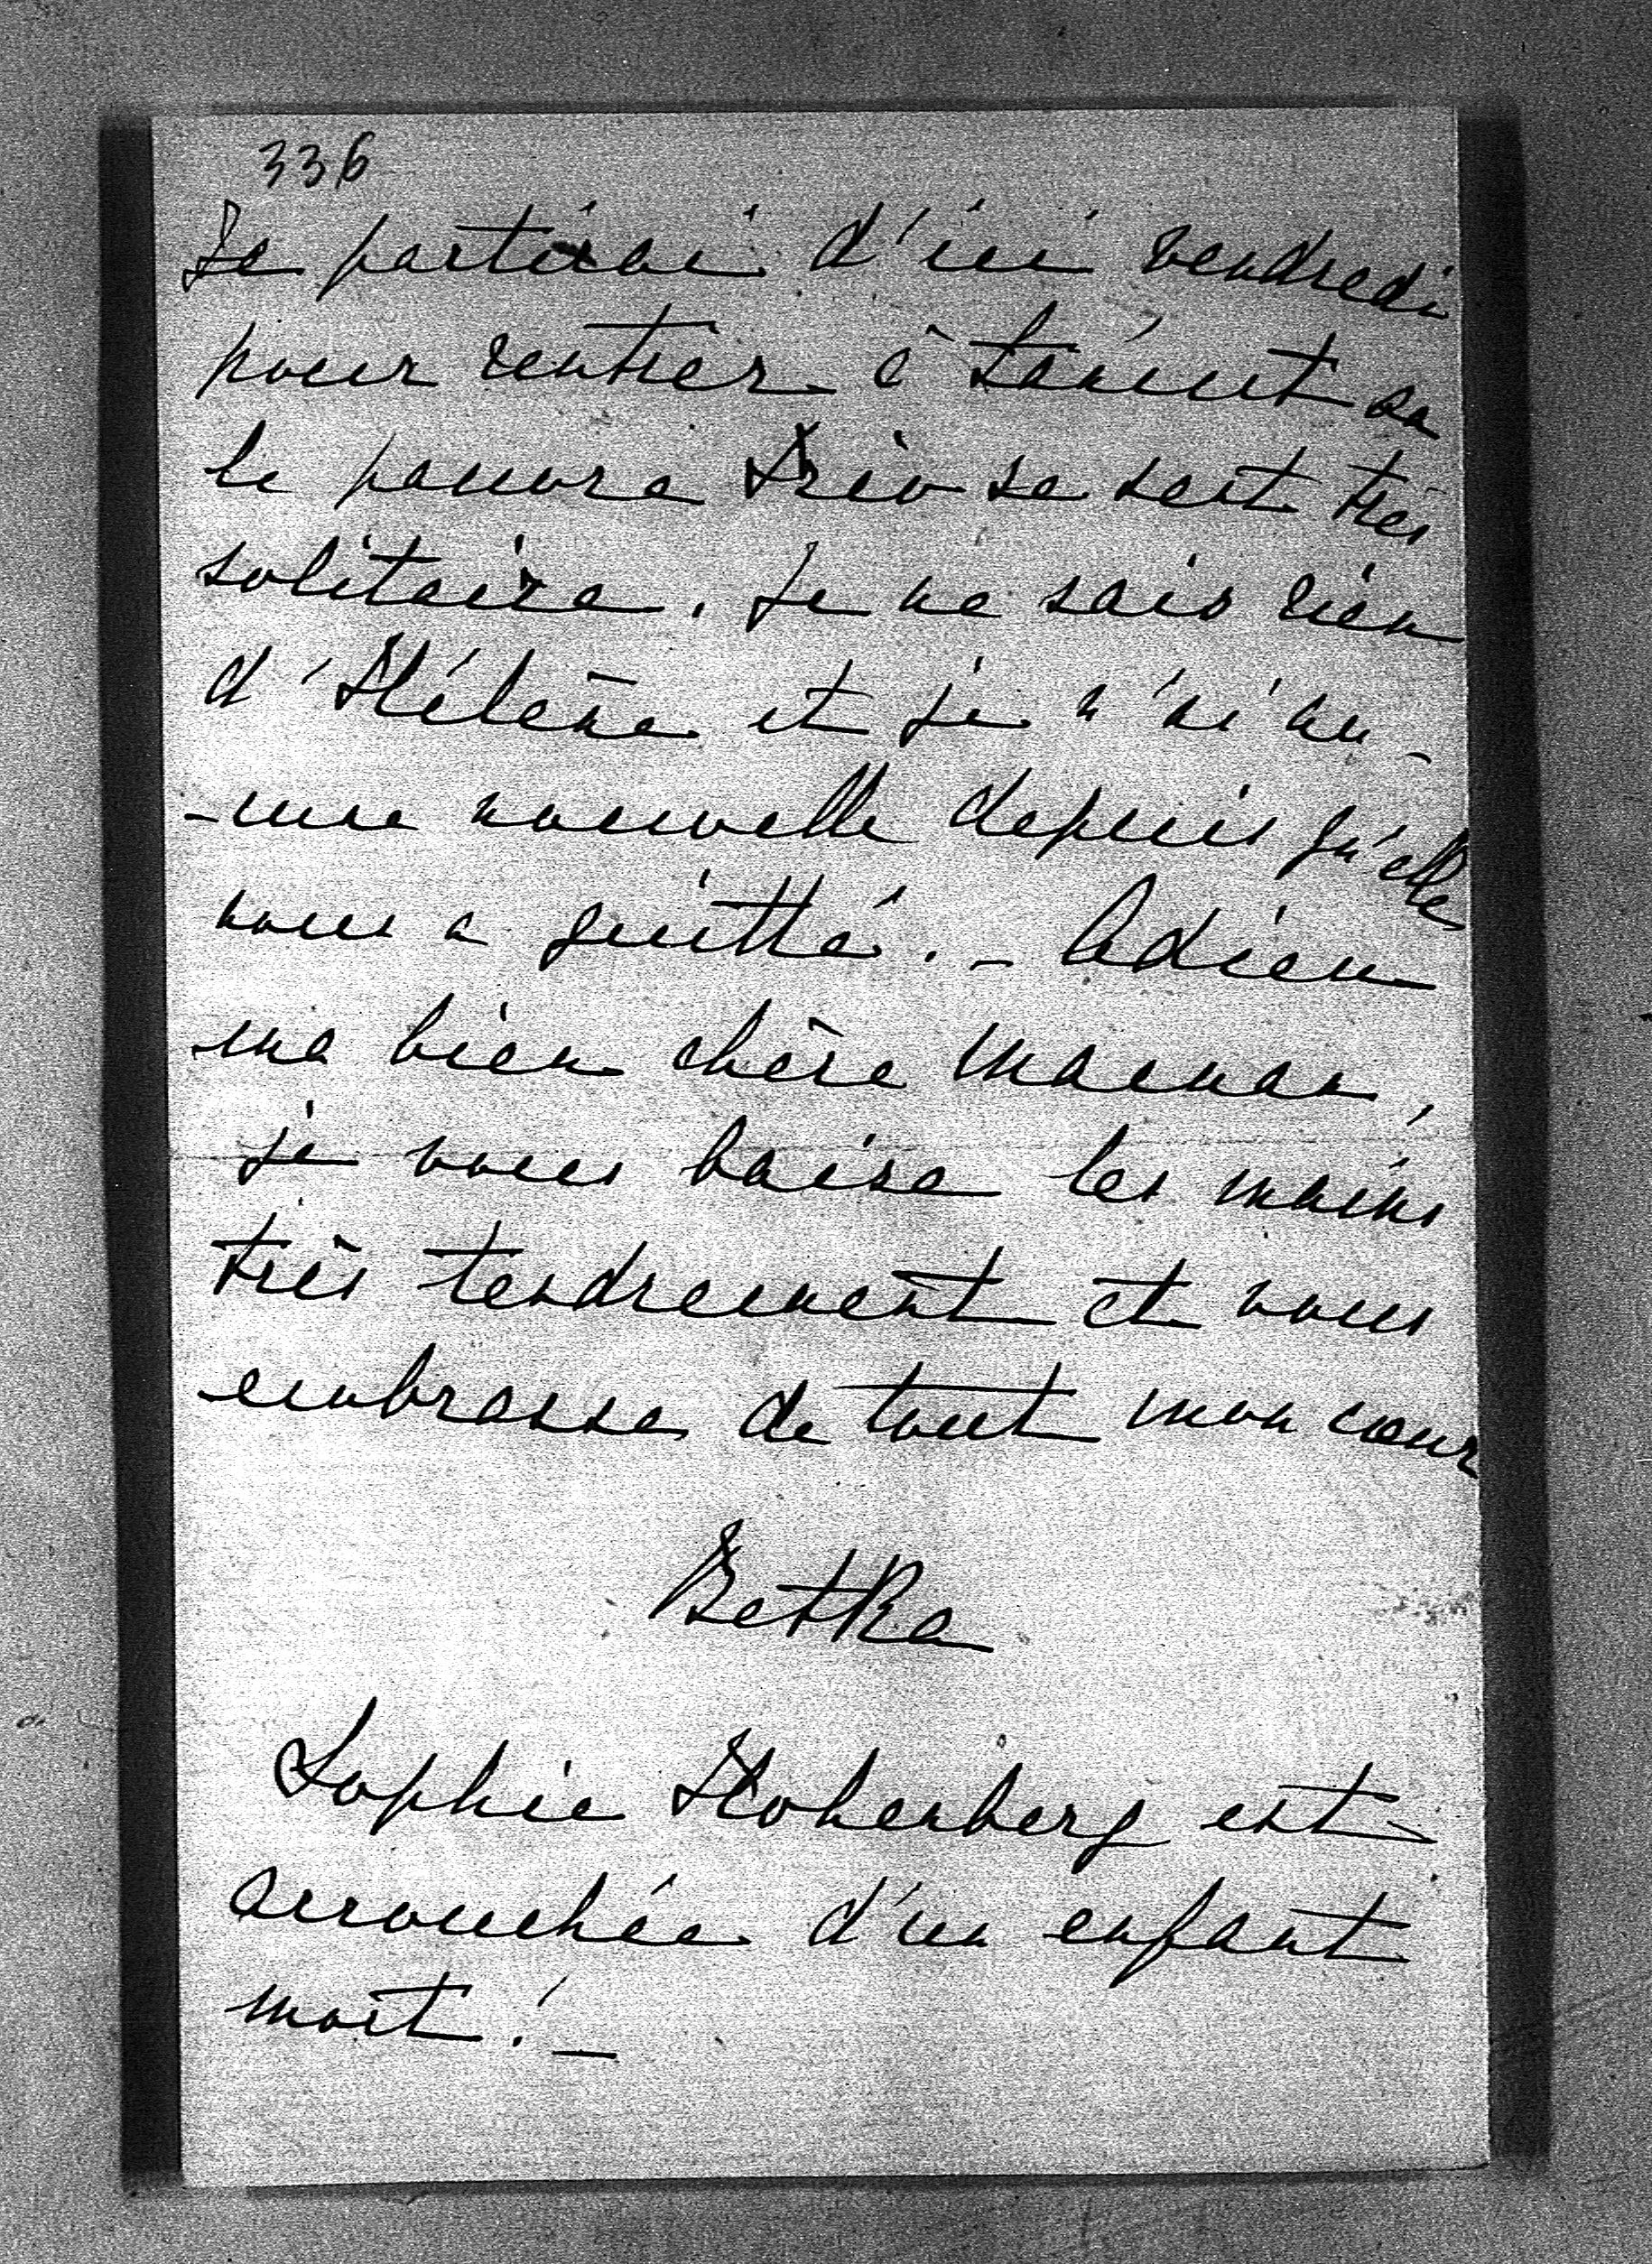 336
Je partirai d'ici vendredi
pour rentrer à Łańcut où
le pauvre Trio se sent très
solitaire. Je ne sais rien
d'Hélène et je n'ai au-
-cune nouvelle depuis qu'elle
nous a quitté. – Adieu
ma bien chère Maman,
je vous baise les mains
très tendrement et vous
embrasse de tout mon cœur
Betka
Sophie Hohenberg est
accouchée d'un enfant
mort! –